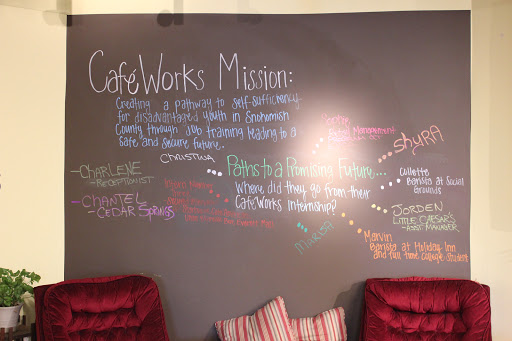 CaféWorks Mission:
Creating a pathway to self-sufficiency
for disadvantaged youth in Snohomish
County through job training leading to a
safe and secure future.
CHRISTINA
-CHARLENE
-RECEPTIONIST
-CHANTEL
-CEDAR SPRINGS
Paths to a Promising Future...
Where did they go from their
CaféWorks internship?
Sophie
Retail Management
SHYRA
Collette
Barista at Social
Grounds
JORDEN
LITTLE CAESAR'S
-ASST MANAGER
Marvin
Barista at Holiday Inn
and full time college student
MARISA